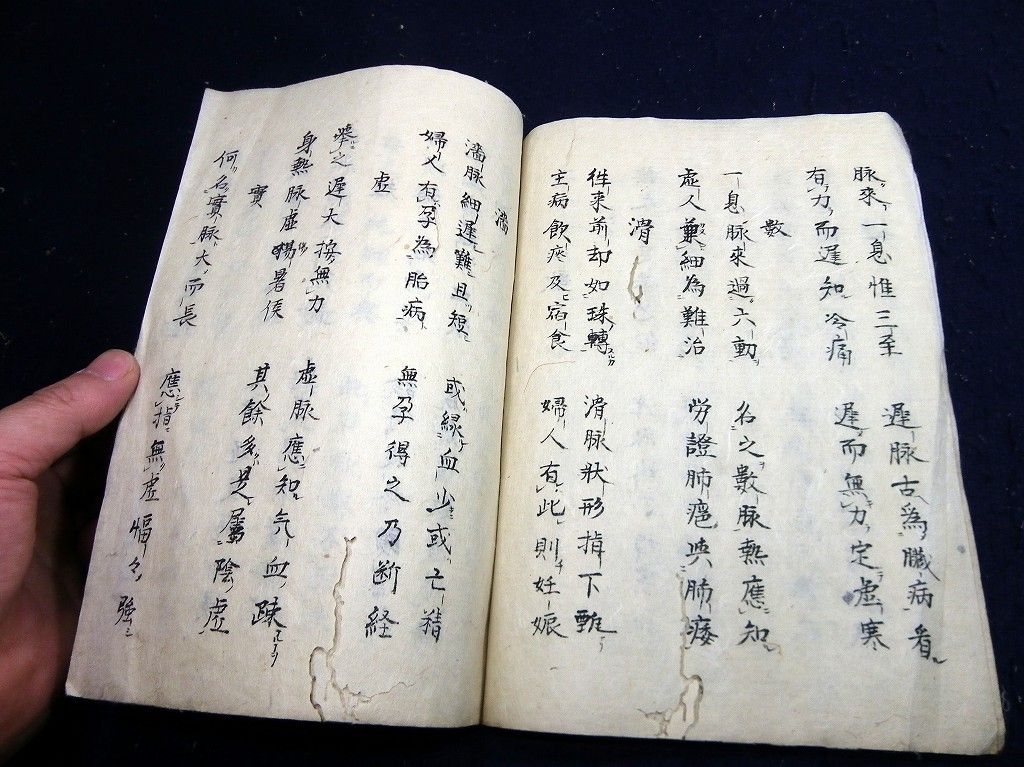 脉来一息惟三至 遅脉古為臓病看
有力而遅知冷痛 遅而無力定虚寒
數
一息脉來過六動 名之數脉熱應知
虚人兼細為難治 労證肺癰與肺痿
滑
徃来前却如珠轉 滑脉状形指下甄
主病飲痰及宿食 婦人有此則妊娠
濇
濇脉細遅難且短 或縁血少或亡精
婦人有孕為胎病 無孕得之乃断経
虚
挙之遅大按無力 虚脉應知気血疎
身熱脉虚傷暑侯 其餘多是屬陰虚
實
何名實脉大而長 應指無虚愊々強